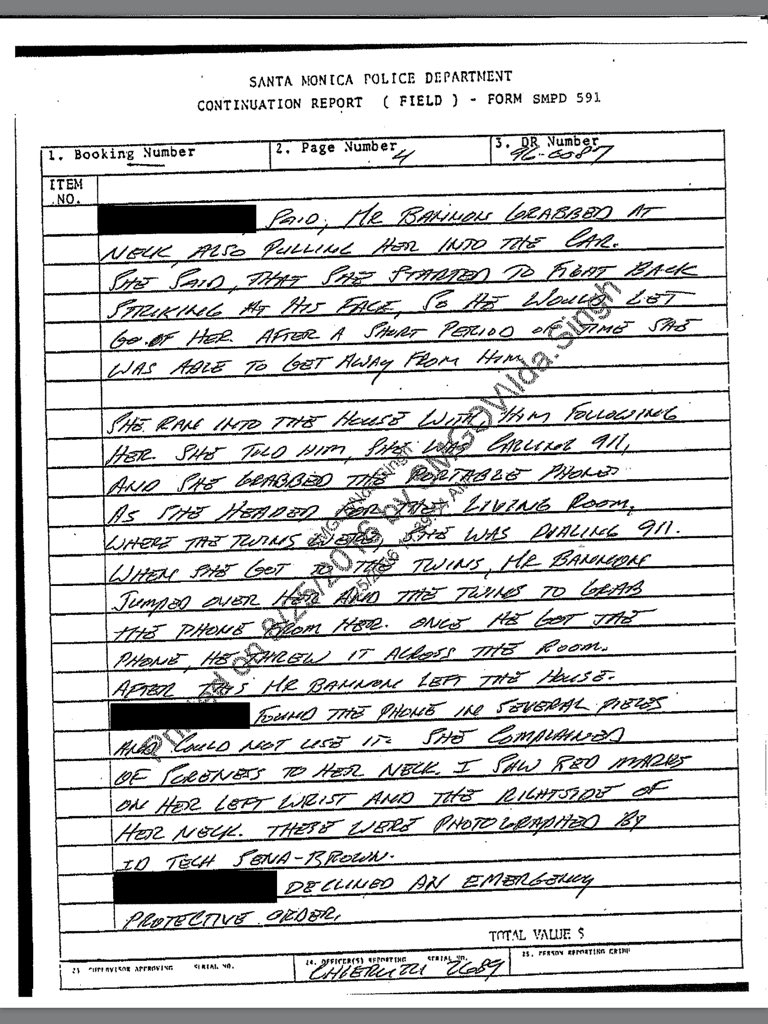 SANTA MONICA POLICE DEPARTMENT
CONTINUATION REPORT ( FIELD ) - FORM SMPD 591
1. Booking Number
2. Page Number 4
3. DR Number 96-6087
ITEM NO.
SAID, MR BANNON GRABBED AT
NECK, ALSO PULLING HER INTO THE CAR.
SHE SAID, THAT SHE STARTED TO FIGHT BACK
STRIKING AT HIS FACE, SO HE WOULD LET
GO OF HER. AFTER A SHORT PERIOD OF TIME SHE
WAS ABLE TO GET AWAY FROM HIM.
SHE RAN INTO THE HOUSE WITH HIM FOLLOWING
HER. SHE TOLD HIM, SHE WAS CALLING 911,
AND SHE GRABBED THE PORTABLE PHONE
AS SHE HEADED FOR THE LIVING ROOM,
WHERE THE TWINS WERE, SHE WAS DIALING 911.
WHEN SHE GOT TO THE TWINS, MR BANNON
JUMPED OVER HER AND THE TWINS TO GRAB
THE PHONE FROM HER. ONCE HE GOT THE
PHONE, HE THREW IT ACROSS THE ROOM.
AFTER THIS MR BANNON LEFT THE HOUSE.
FOUND THE PHONE IN SEVERAL PIECES
AND COULD NOT USE IT. SHE COMPLAINED
OF SORENESS TO HER NECK. I SAW RED MARKS
ON HER LEFT WRIST AND THE RIGHTSIDE OF
HER NECK. THESE WERE PHOTOGRAPHED BY
ID TECH SENA-BROWN.
DECLINED AN EMERGENCY
PROTECTIVE ORDER.
TOTAL VALUE $
SUPERVISOR APPROVING SERIAL NO.
24. OFFICER(S) REPORTING SERIAL NO.
25. PERSON REPORTING CRIME
2689
Printed on 8/25/2016 by SMGOV\Ida.Singh